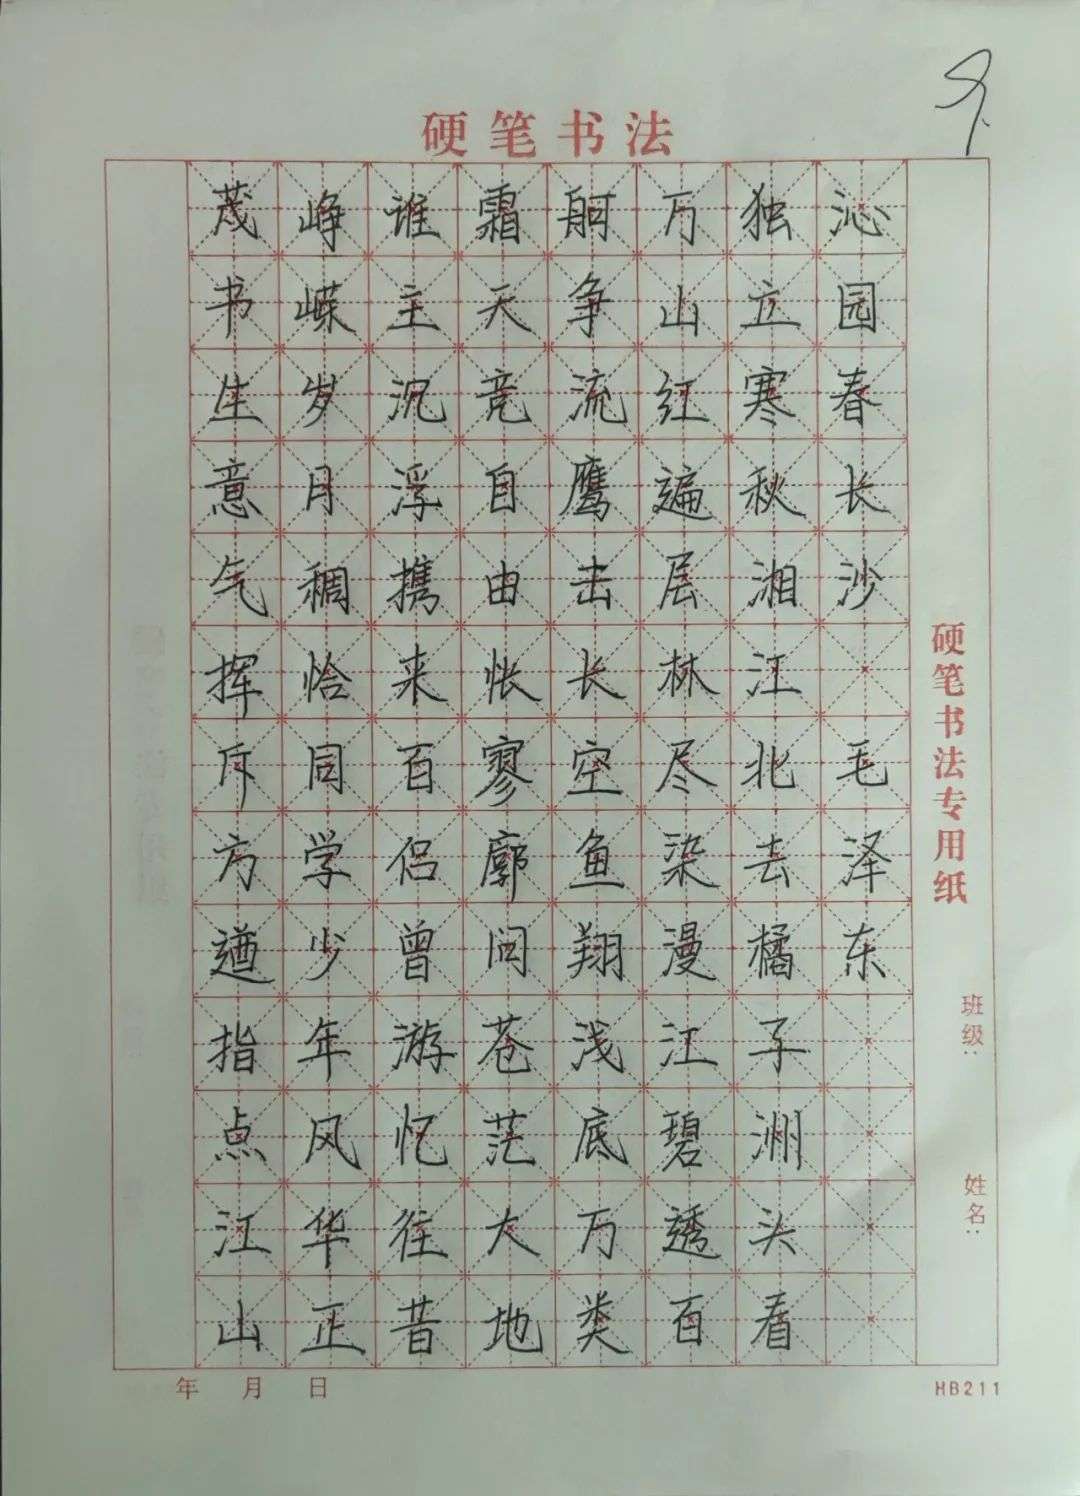 硬笔书法
沁园春长沙 毛泽东
独立寒秋湘江北去橘子洲头看
万山红遍层林尽染漫江碧透百
舸争流鹰击长空鱼翔浅底万类
霜天竞自由怅寥廓问苍茫大地
谁主沉浮携来百侣曾游忆往昔
峥嵘岁月稠恰同学少年风华正
茂书生意气挥斥方遒指点江山
硬笔书法专用纸
班级:
姓名:
年 月 日
HB211